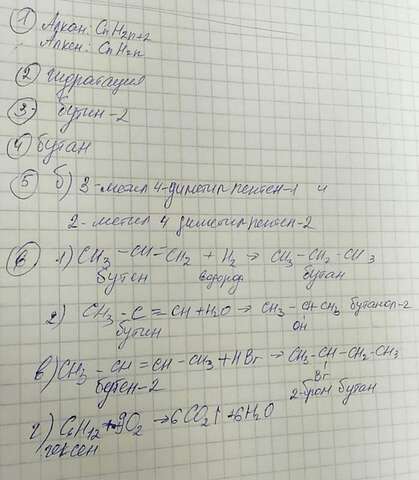 ① Алкан: CnH2n+2
Алкен: CnH2n
② гидратация
③ бутин-2
④ бутан
⑤ б) 3-метил 4-диметил пентен-1 и
2-метил 4 диметил пентен-2
⑥ 1) CH3 - CH = CH2 + H2 → CH3 - CH2 - CH3
бутен водород бутан
2) CH3 - C = CH + H2O → CH3 - CH CH3 бутанол-2
бутин OH
в) CH3 - CH = CH - CH3 + HBr → CH3 - CH - CH2 - CH3
бутен-2 Br
2-бром бутан
г) C6H12 + 9O2 → 6CO2↑ + 6H2O
гексен